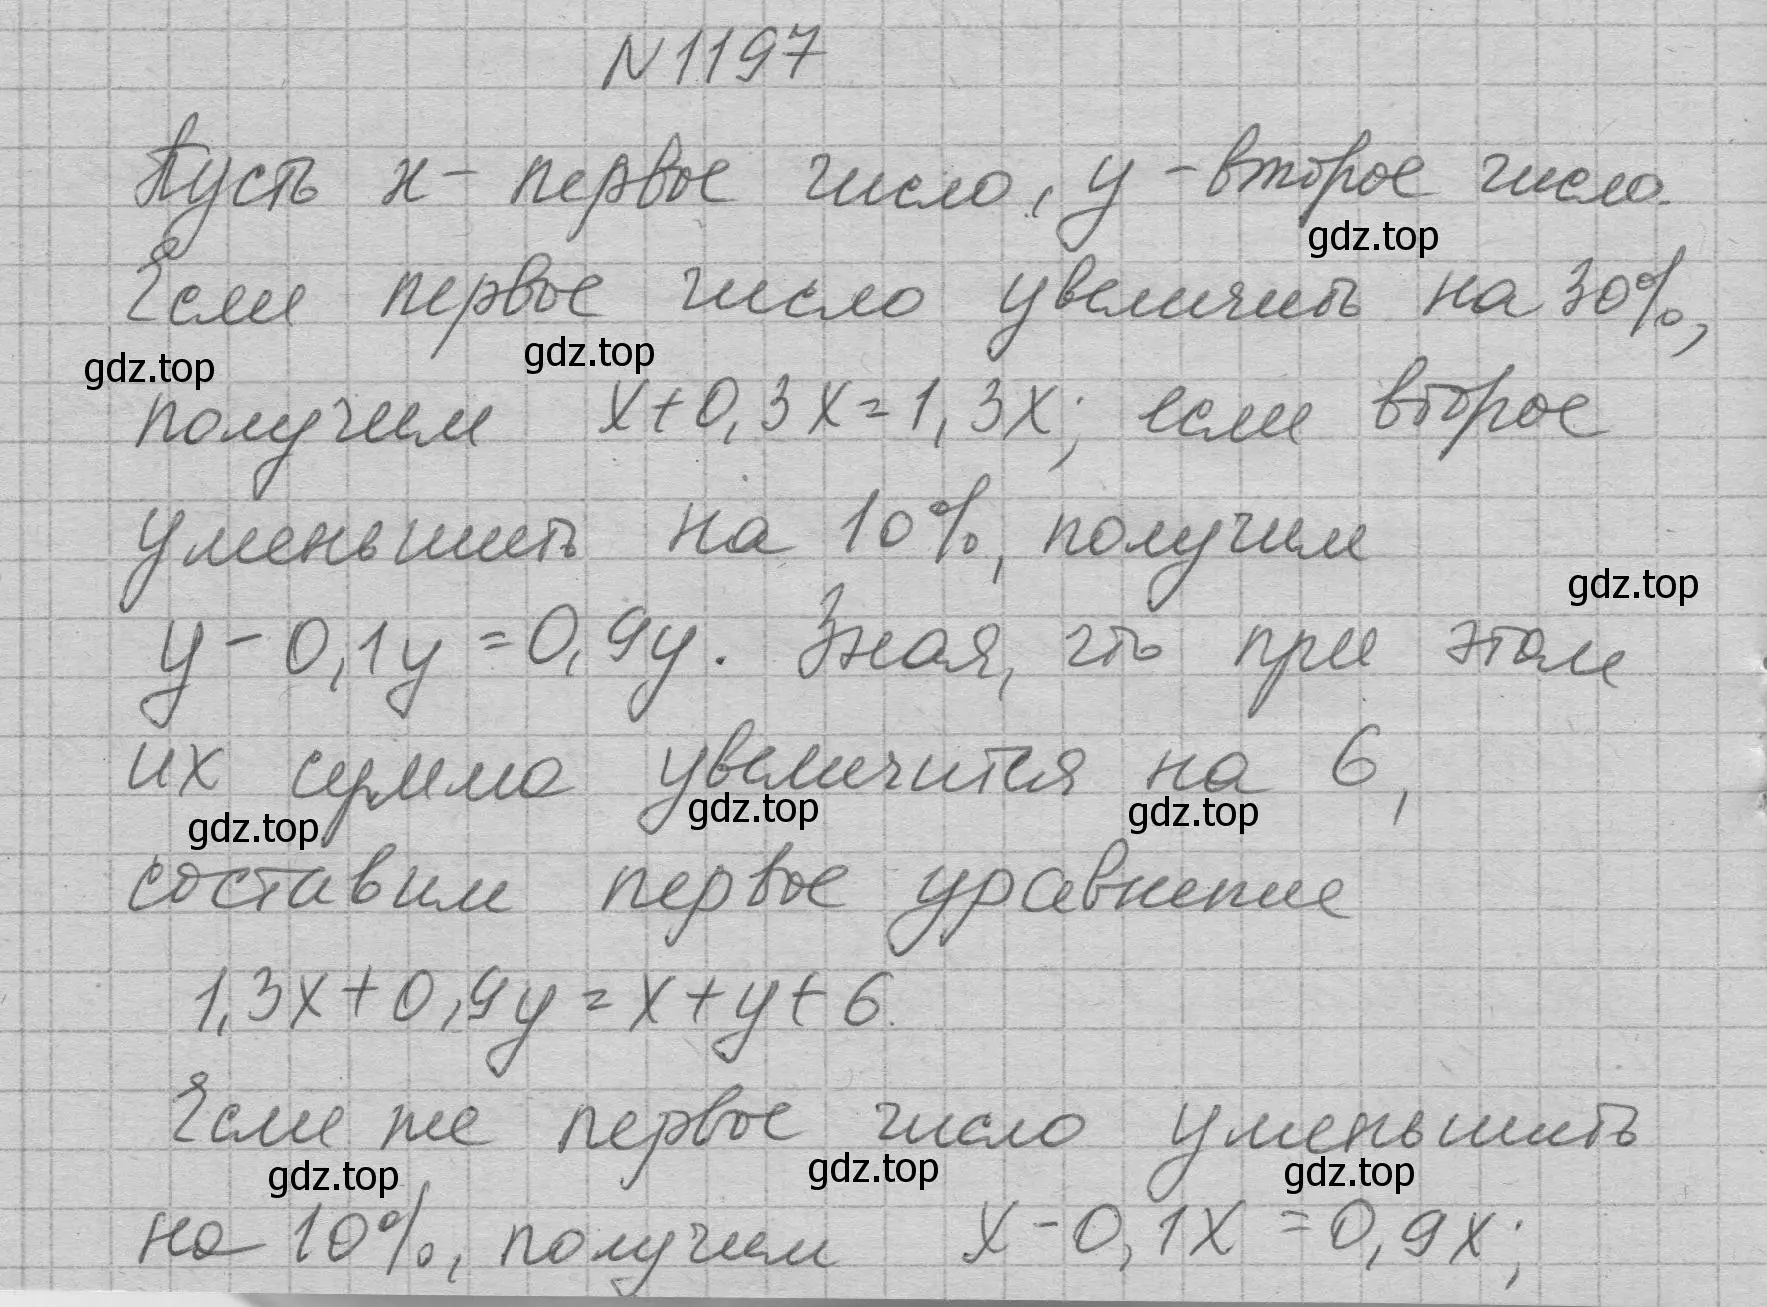 N1197
Пусть x - первое число, y - второе число.
gdz.top
Если первое число увеличить на 30%,
gdz.top gdz.top
получим x+0,3x=1,3x; если второе
уменьшить на 10%, получим
gdz.top
y-0,1y=0,9y. Зная, что при этом
их сумма увеличится на 6,
gdz.top gdz.top gdz.top
составим первое уравнение
1,3x+0,9y=x+y+6.
Если же первое число уменьшить
gdz.top gdz.top gdz.top
на 10%, получим x-0,1x=0,9x;